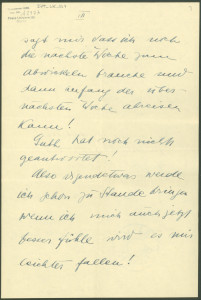 III
sagt mir dass ich noch
die nächste Woche zum
abwickeln brauche und
dann anfangs der über-
nächsten Woche abreisen
kann!
Gabl hat noch nicht
geantwortet!
Also irgendetwas werde
ich schon zu Stande bringen
wenn ich mich auch jetzt
besser fühle wird es mir
leichter fallen!